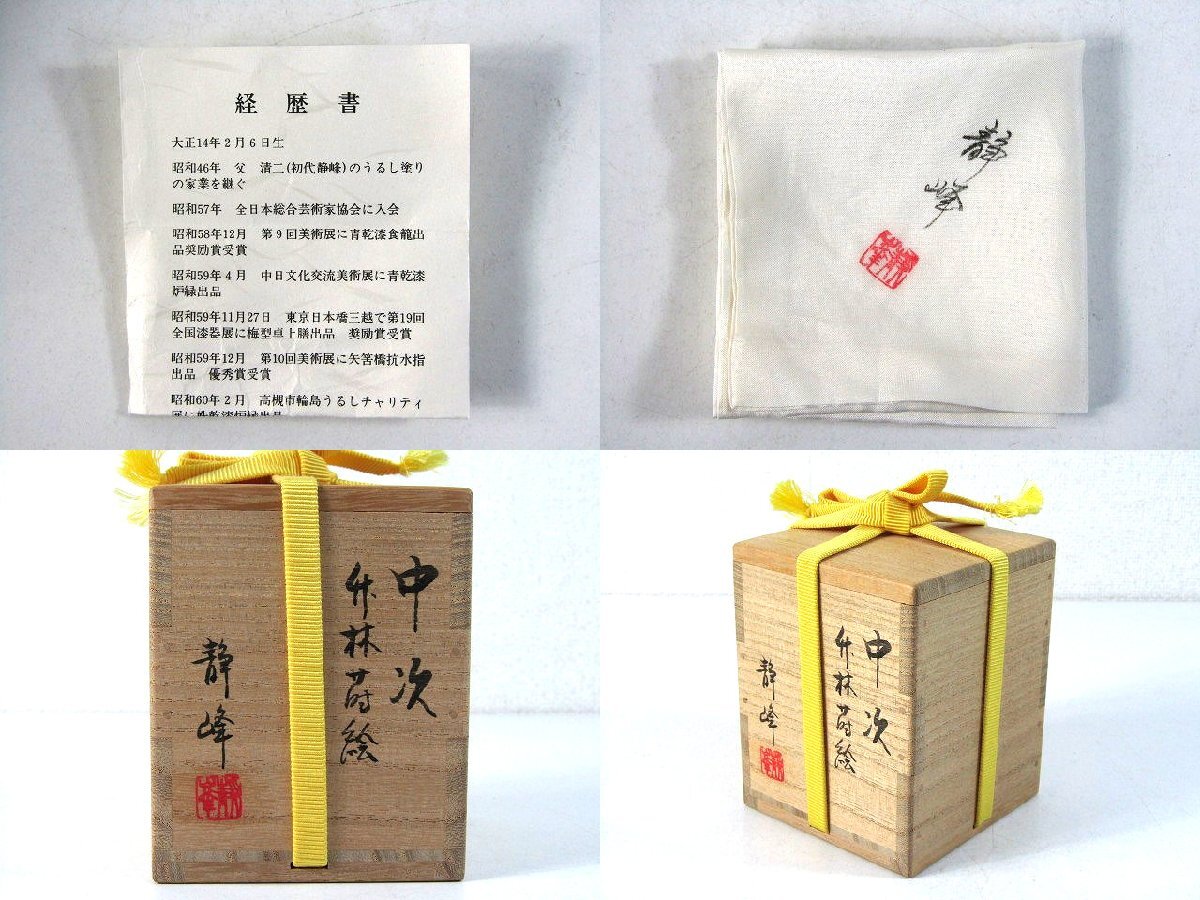 経 歴 書
大正14年2月6日生
昭和46年 父 清二(初代静峰)のうるし塗り
の家業を継ぐ
昭和57年 全日本総合芸術家協会に入会
昭和58年12月 第9回美術展に青乾漆食籠出
品奨励賞受賞
昭和59年4月 中日文化交流美術展に青乾漆
炉縁出品
昭和59年11月27日 東京日本橋三越で第19回
全国漆器展に梅型卓上膳出品 奨励賞受賞
昭和59年12月 第10回美術展に矢筈橋抗水指
出品 優秀賞受賞
昭和60年2月 高槻市輪島うるしチャリティ
静峰
中次
竹林蒔絵
静峰
中次
竹林蒔絵
静峰